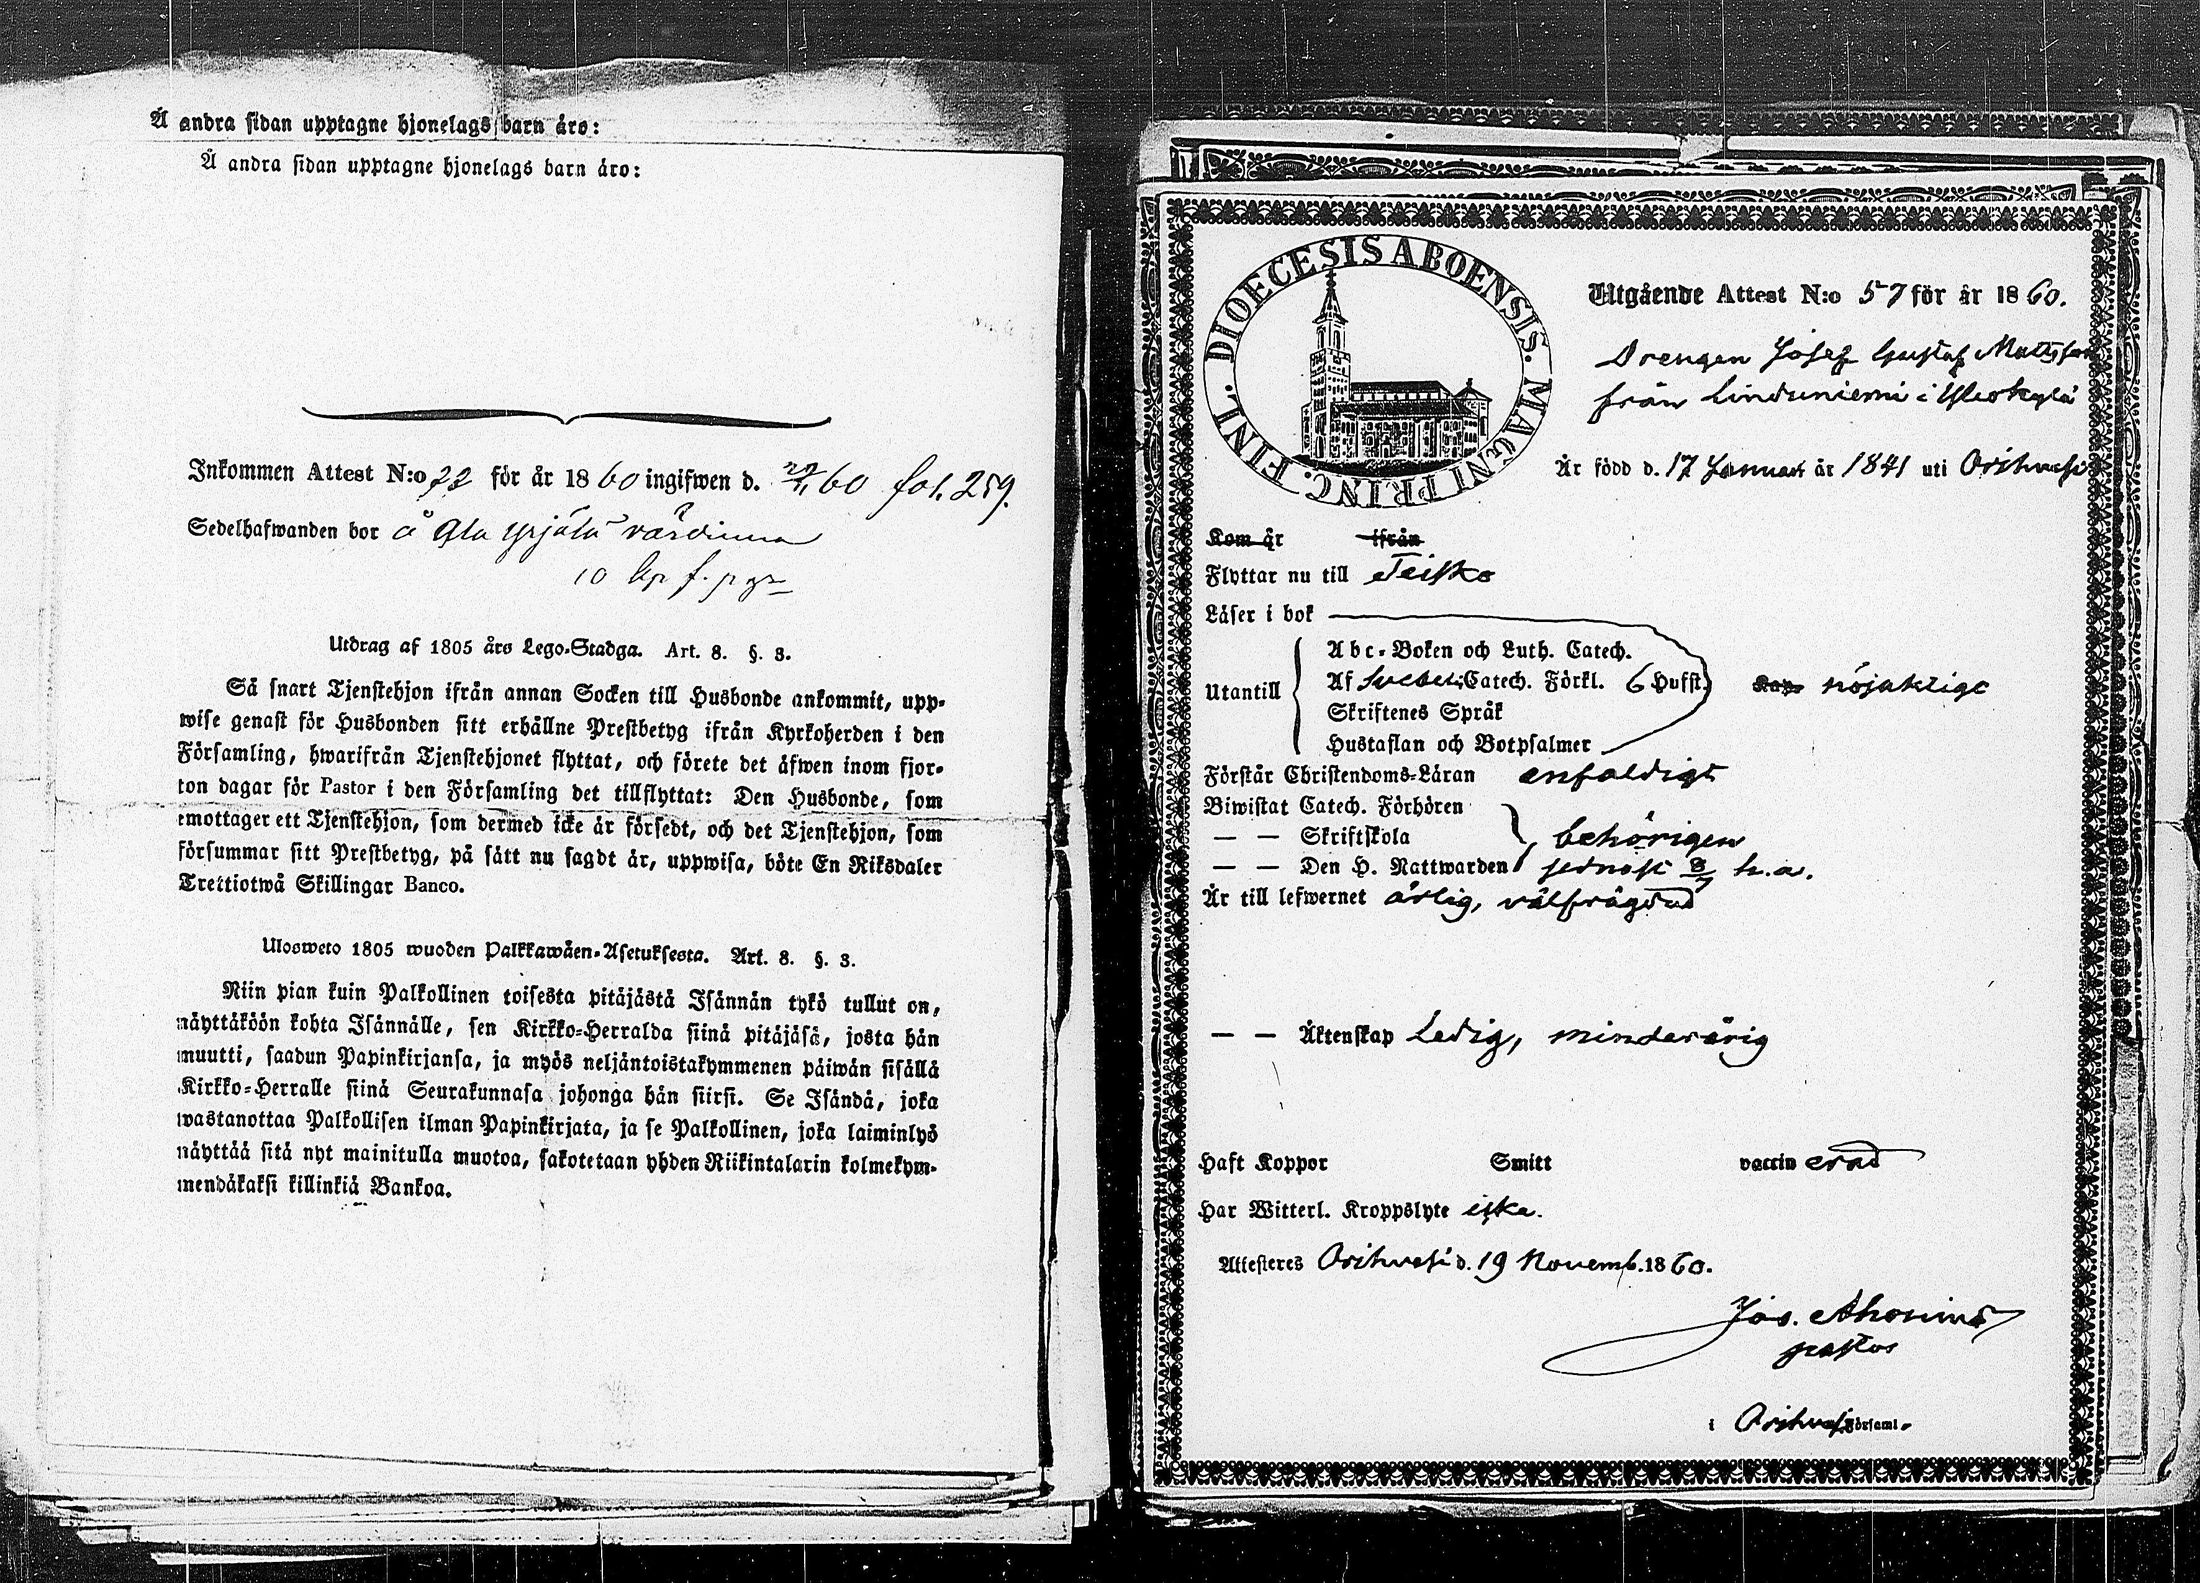 Å andra sidan upptagne hjonelags barn äro:
Å andra sidan upptagne hjonelags barn äro:
Inkommen Attest N:o 22 för år 1860 ingifwen d. 60 fol. 259.
Sedelhafwanden bor å Yrjälä värdinna
10 kp f.
Utdrag af 1805 års Lego-Stadga. Art. 8. §. 3.
Så snart Tjenstehjon ifrån annan Socken till Husbonde ankommit, upp-
wise genast för Husbonden sitt erhållne Prestbetyg ifrån Kyrkoherden i den
Församling, hwarifrån Tjenstehjonet flyttat, och förete det äfwen inom fjor-
ton dagar för Pastor i den Församling det tillflyttat: Den Husbonde, som
emottager ett Tjenstehjon, som dermed icke är försedt, och det Tjenstehjon, som
försummar sitt Prestbetyg, på sätt nu sagdt är, uppwisa, böte En Riksdaler
Trettiotwå Skillingar Banco.
Ulosweto 1805 wuoden Palkkawäen-Asetuksesta. Art. 8. §. 3.
Niin pian kuin Palkollinen toisesta pitäjästä Isännän tykö tullut on,
näyttäköön kohta Isännälle, sen Kirkko-Herralda siinä pitäjäsä, josta hän
muutti, saadun Papinkirjansa, ja myös neljäntoistakymmenen päiwän sisällä
Kirkko-Herralle siinä Seurakunnasa johonga hän siirsi. Se Isändä, joka
wastanottaa Palkollisen ilman Papinkirjata, ja se Palkollinen, joka laiminlyö
näyttää sitä nyt mainitulla muotoa, sakotetaan yhden Riikintalarin kolmekym-
mendäkaksi killinkiä Bankoa.
DIOECESIS ABOENSIS. MAGNI PRINC. FINL.
Utgående Attest N:o 57 för år 1860.
Drengen Josef Gustaf Mattsson
från Linduniemi i Yleskylä
Är född d. 17 Januari år 1841 uti Orihvesi
Kom år ifrån
Flyttar nu till Teisko
Läser i bok
Utantill
Abc-Boken och Luth. Catech.
Af Svebeli Catech. Förkl. 6 Hufst. nöjaktigt
Skriftenes Språk
Hustaflan och Botpsalmer
Förstår Christendoms-Läran enfaldigt
Biwistat Catech. Förhören
— — Skriftskola behörigen
— — Den H. Nattwarden sednast 8/7 h.a.
Är till lefwernet ärlig, välfrägdad
— — Äktenskap Ledig, minderårig
Haft Koppor Smitt vaccinerad
Har Witterl. Kroppslyte icke.
Attesteres Orihvesi d. 19 Novemb. 1860.
Jos. Ahonius
pastor
i Orihvesi Församl.